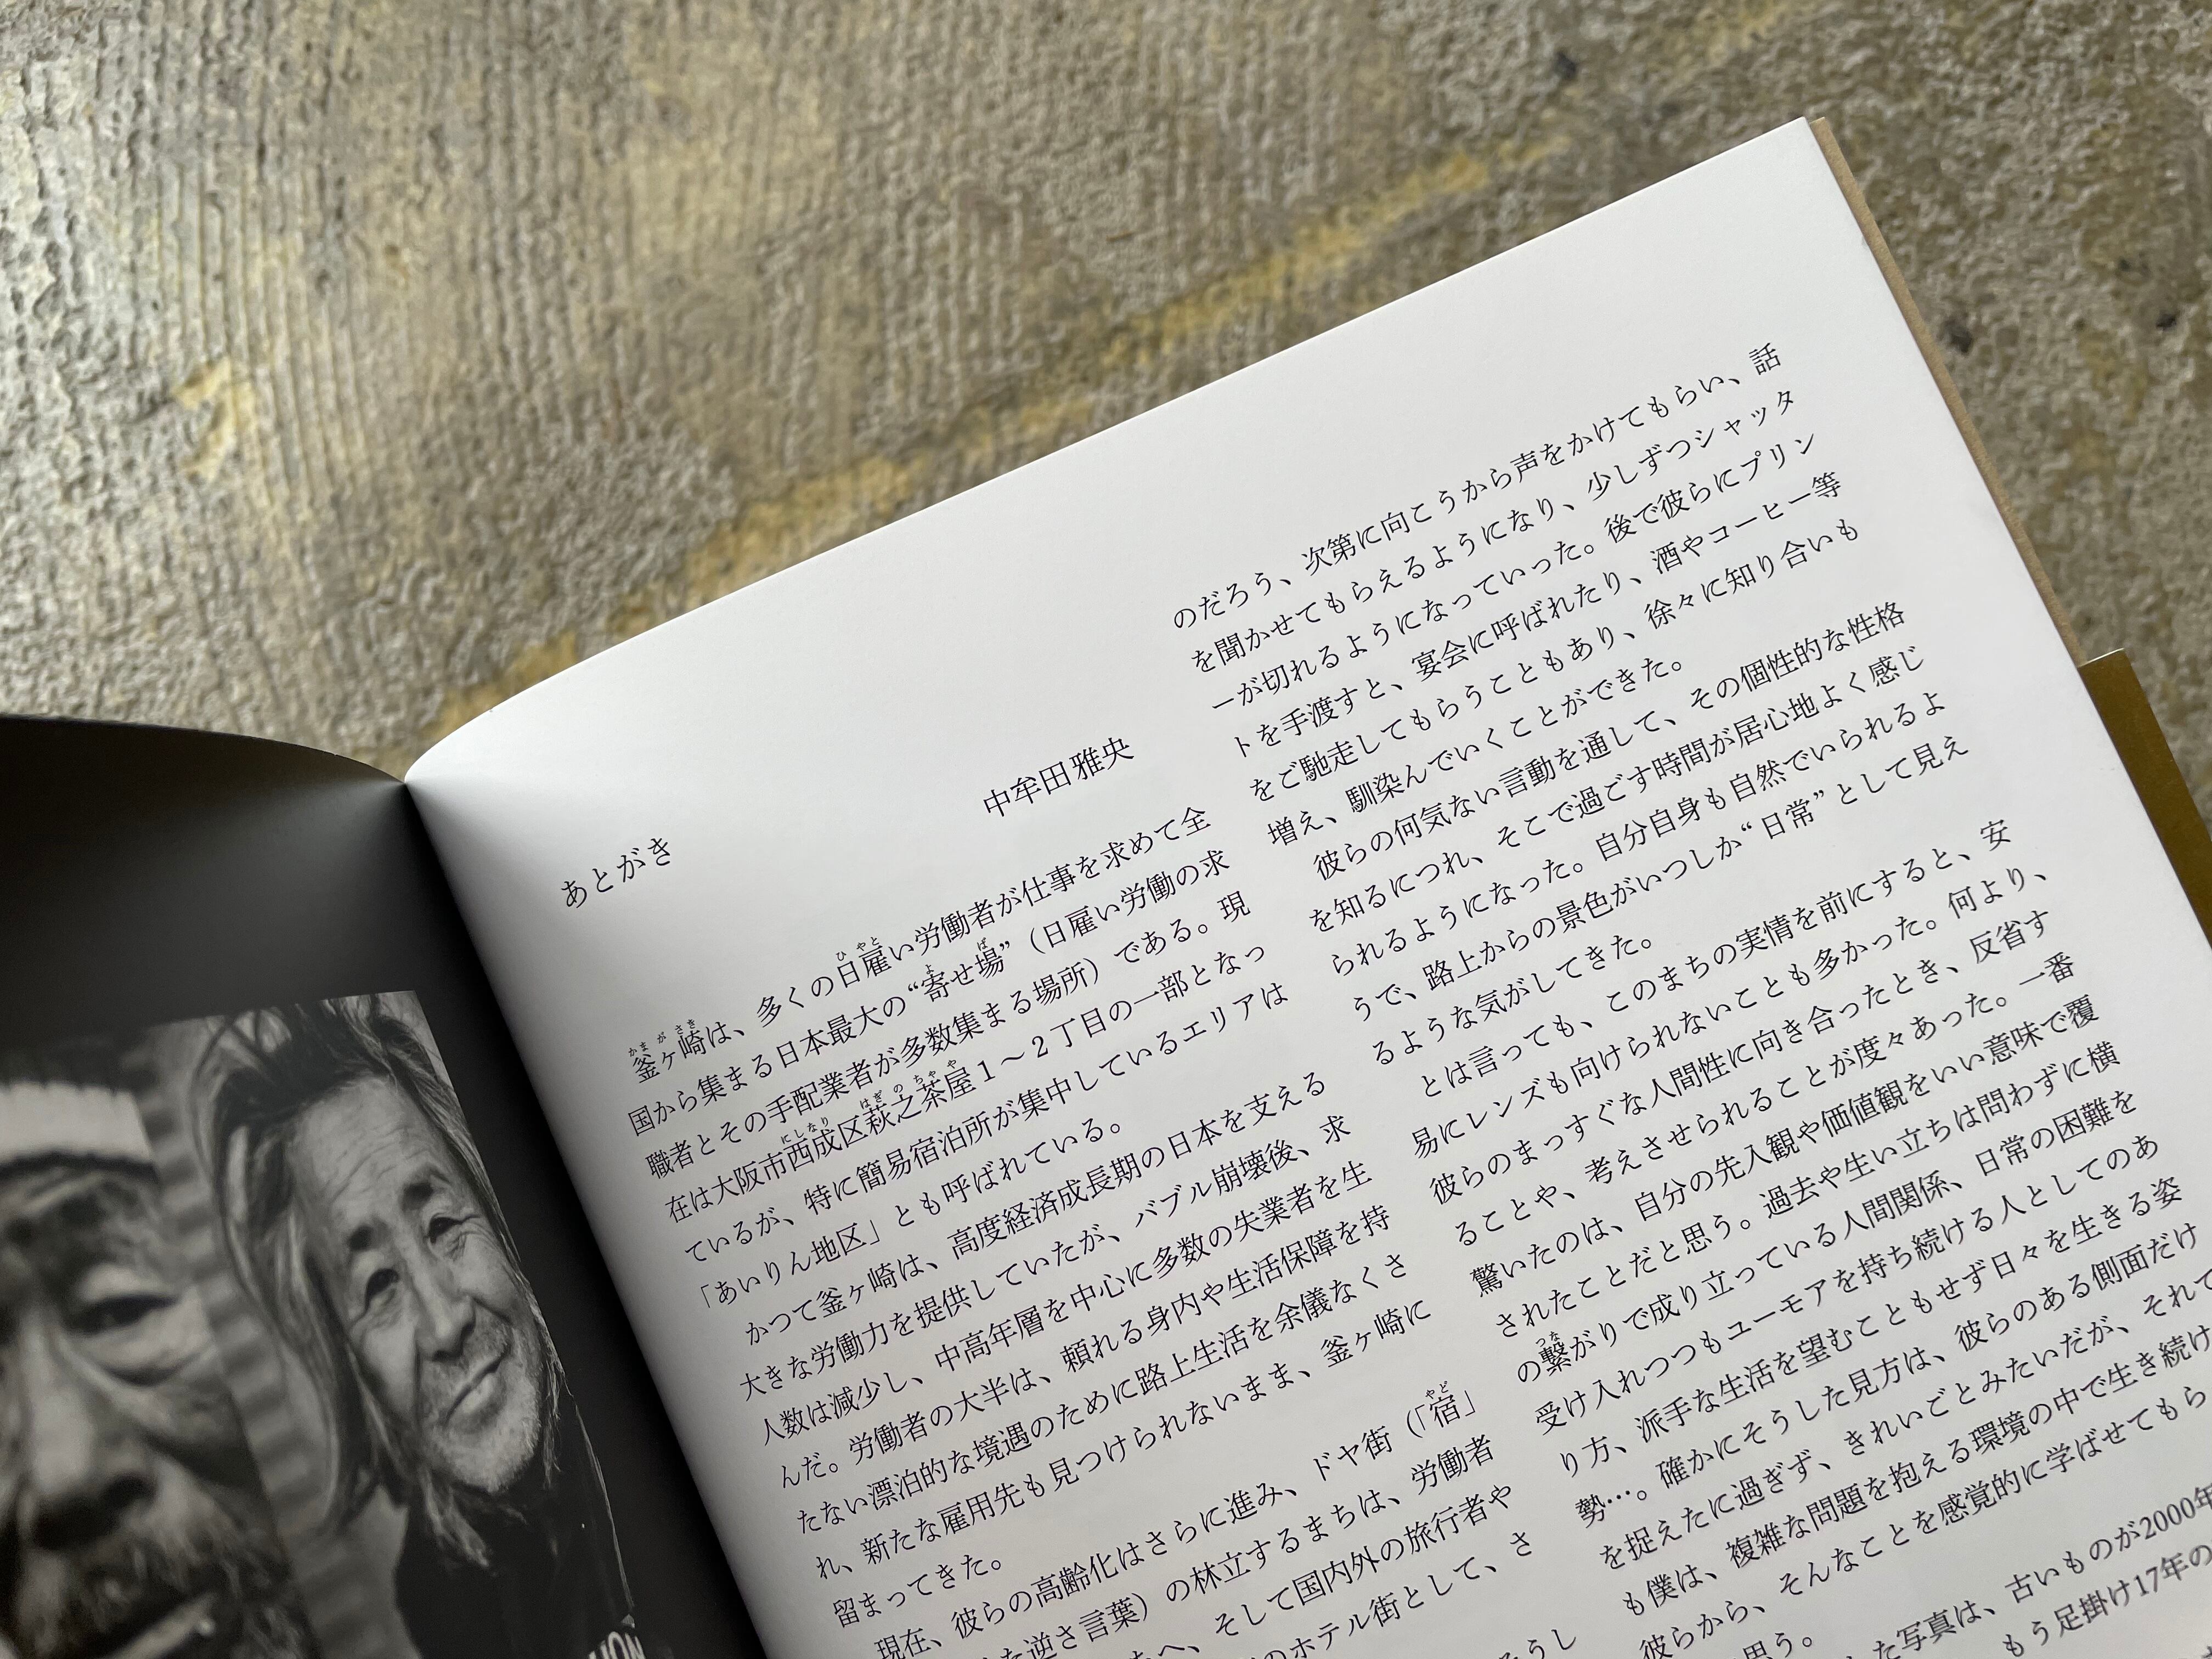 あとがき
中牟田雅央
釜ヶ崎は、多くの日雇い労働者が仕事を求めて全
国から集まる日本最大の“寄せ場”（日雇い労働の求
職者とその手配業者が多数集まる場所）である。現
在は大阪市西成区萩之茶屋1～2丁目の一部となっ
ているが、特に簡易宿泊所が集中しているエリアは
「あいりん地区」とも呼ばれている。
かつて釜ヶ崎は、高度経済成長期の日本を支える
大きな労働力を提供していたが、バブル崩壊後、求
人数は減少し、中高年層を中心に多数の失業者を生
んだ。労働者の大半は、頼れる身内や生活保障を持
たない漂泊的な境遇のために路上生活を余儀なくさ
れ、新たな雇用先も見つけられないまま、釜ヶ崎に
留まってきた。
現在、彼らの高齢化はさらに進み、ドヤ街（「宿」
た逆さ言葉）の林立するまちは、労働者
へ、そして国内外の旅行者や
のホテル街として、さ
そうし
のだろう、次第に向こうから声をかけてもらい、話
を聞かせてもらえるようになり、少しずつシャッタ
ーが切れるようになっていった。後で彼らにプリン
トを手渡すと、宴会に呼ばれたり、酒やコーヒー等
をご馳走してもらうこともあり、徐々に知り合いも
増え、馴染んでいくことができた。
彼らの何気ない言動を通して、その個性的な性格
を知るにつれ、そこで過ごす時間が居心地よく感じ
られるようになった。自分自身も自然でいられるよ
うで、路上からの景色がいつしか“日常”として見え
るような気がしてきた。
とは言っても、このまちの実情を前にすると、安
易にレンズも向けられないことも多かった。何より、
彼らのまっすぐな人間性に向き合ったとき、反省す
ることや、考えさせられることが度々あった。一番
驚いたのは、自分の先入観や価値観をいい意味で覆
されたことだと思う。過去や生い立ちは問わずに横
の繋がりで成り立っている人間関係、日常の困難を
受け入れつつもユーモアを持ち続ける人としてのあ
り方、派手な生活を望むこともせず日々を生きる姿
勢…。確かにそうした見方は、彼らのある側面だけ
を捉えたに過ぎず、きれいごとみたいだが、それで
も僕は、複雑な問題を抱える環境の中で生き続け
彼らから、そんなことを感覚的に学ばせてもら
思う。
た写真は、古いものが2000年
もう足掛け17年の